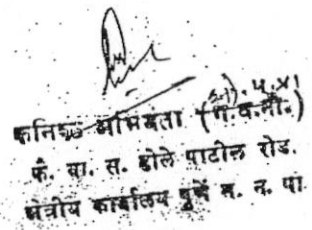 कनिष्ठ अभियंता (ग.व.नी.)
फॅ. वा. स. ढोले पाटील रोड.
क्षेत्रीय कार्यालय पुणे म. न. पा